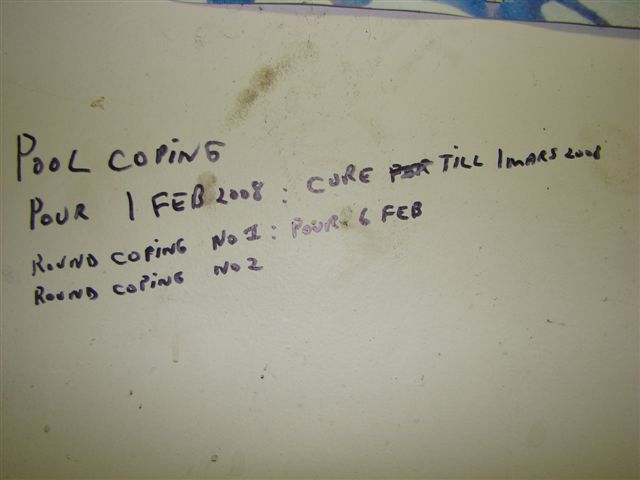 POOL COPING
POUR 1 FEB 2008 : CURE TILL 1 MARS 2008
ROUND COPING NO 1 : POUR 6 FEB
ROUND COPING NO 2